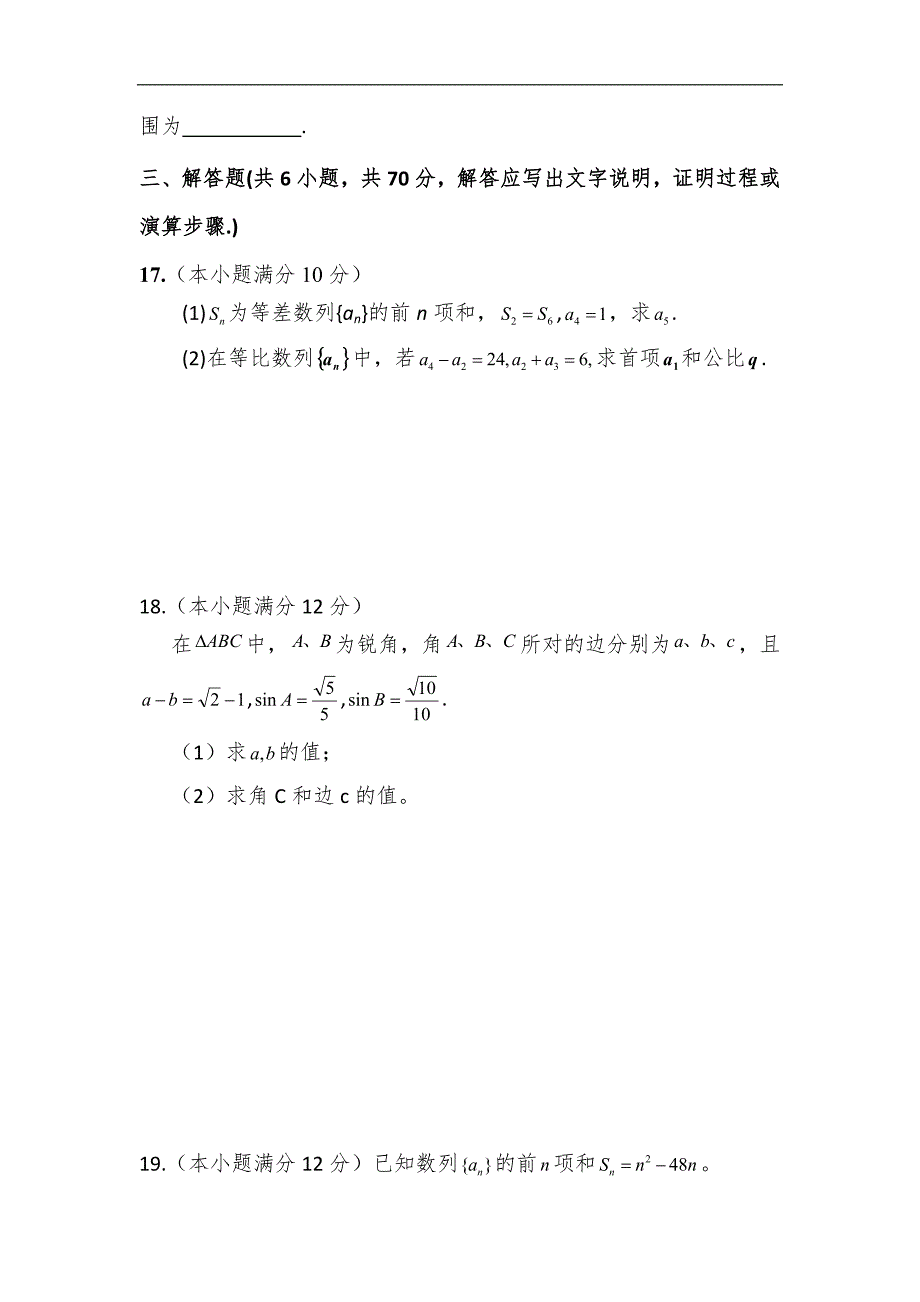 围为 ____________ .
三、解答题(共 6 小题，共 70 分，解答应写出文字说明，证明过程或
演算步骤.)
17.（本小题满分 10 分）
(1) Sₙ 为等差数列{aₙ}的前 n 项和， S₂ = S₆ , a₄ = 1，求 a₅ .
(2)在等比数列{aₙ}中，若 a₄ − a₂ = 24, a₂ + a₃ = 6, 求首项 a₁ 和公比 q .
18.（本小题满分 12 分）
在 ΔABC 中， A、B 为锐角，角 A、B、C 所对的边分别为 a、b、c ，且
a − b = √2 − 1 , sin A = √5/5 , sin B = √10/10 .
（1）求 a,b 的值；
（2）求角 C 和边 c 的值。
19.（本小题满分 12 分）已知数列 {aₙ} 的前 n 项和 Sₙ = n² − 48n 。